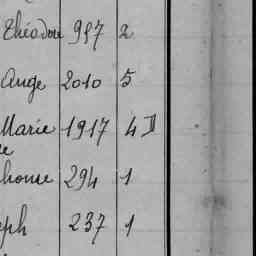 Théodore 957 2
Ange 2010 5
Marie 1917 4 II
294 1
237 1